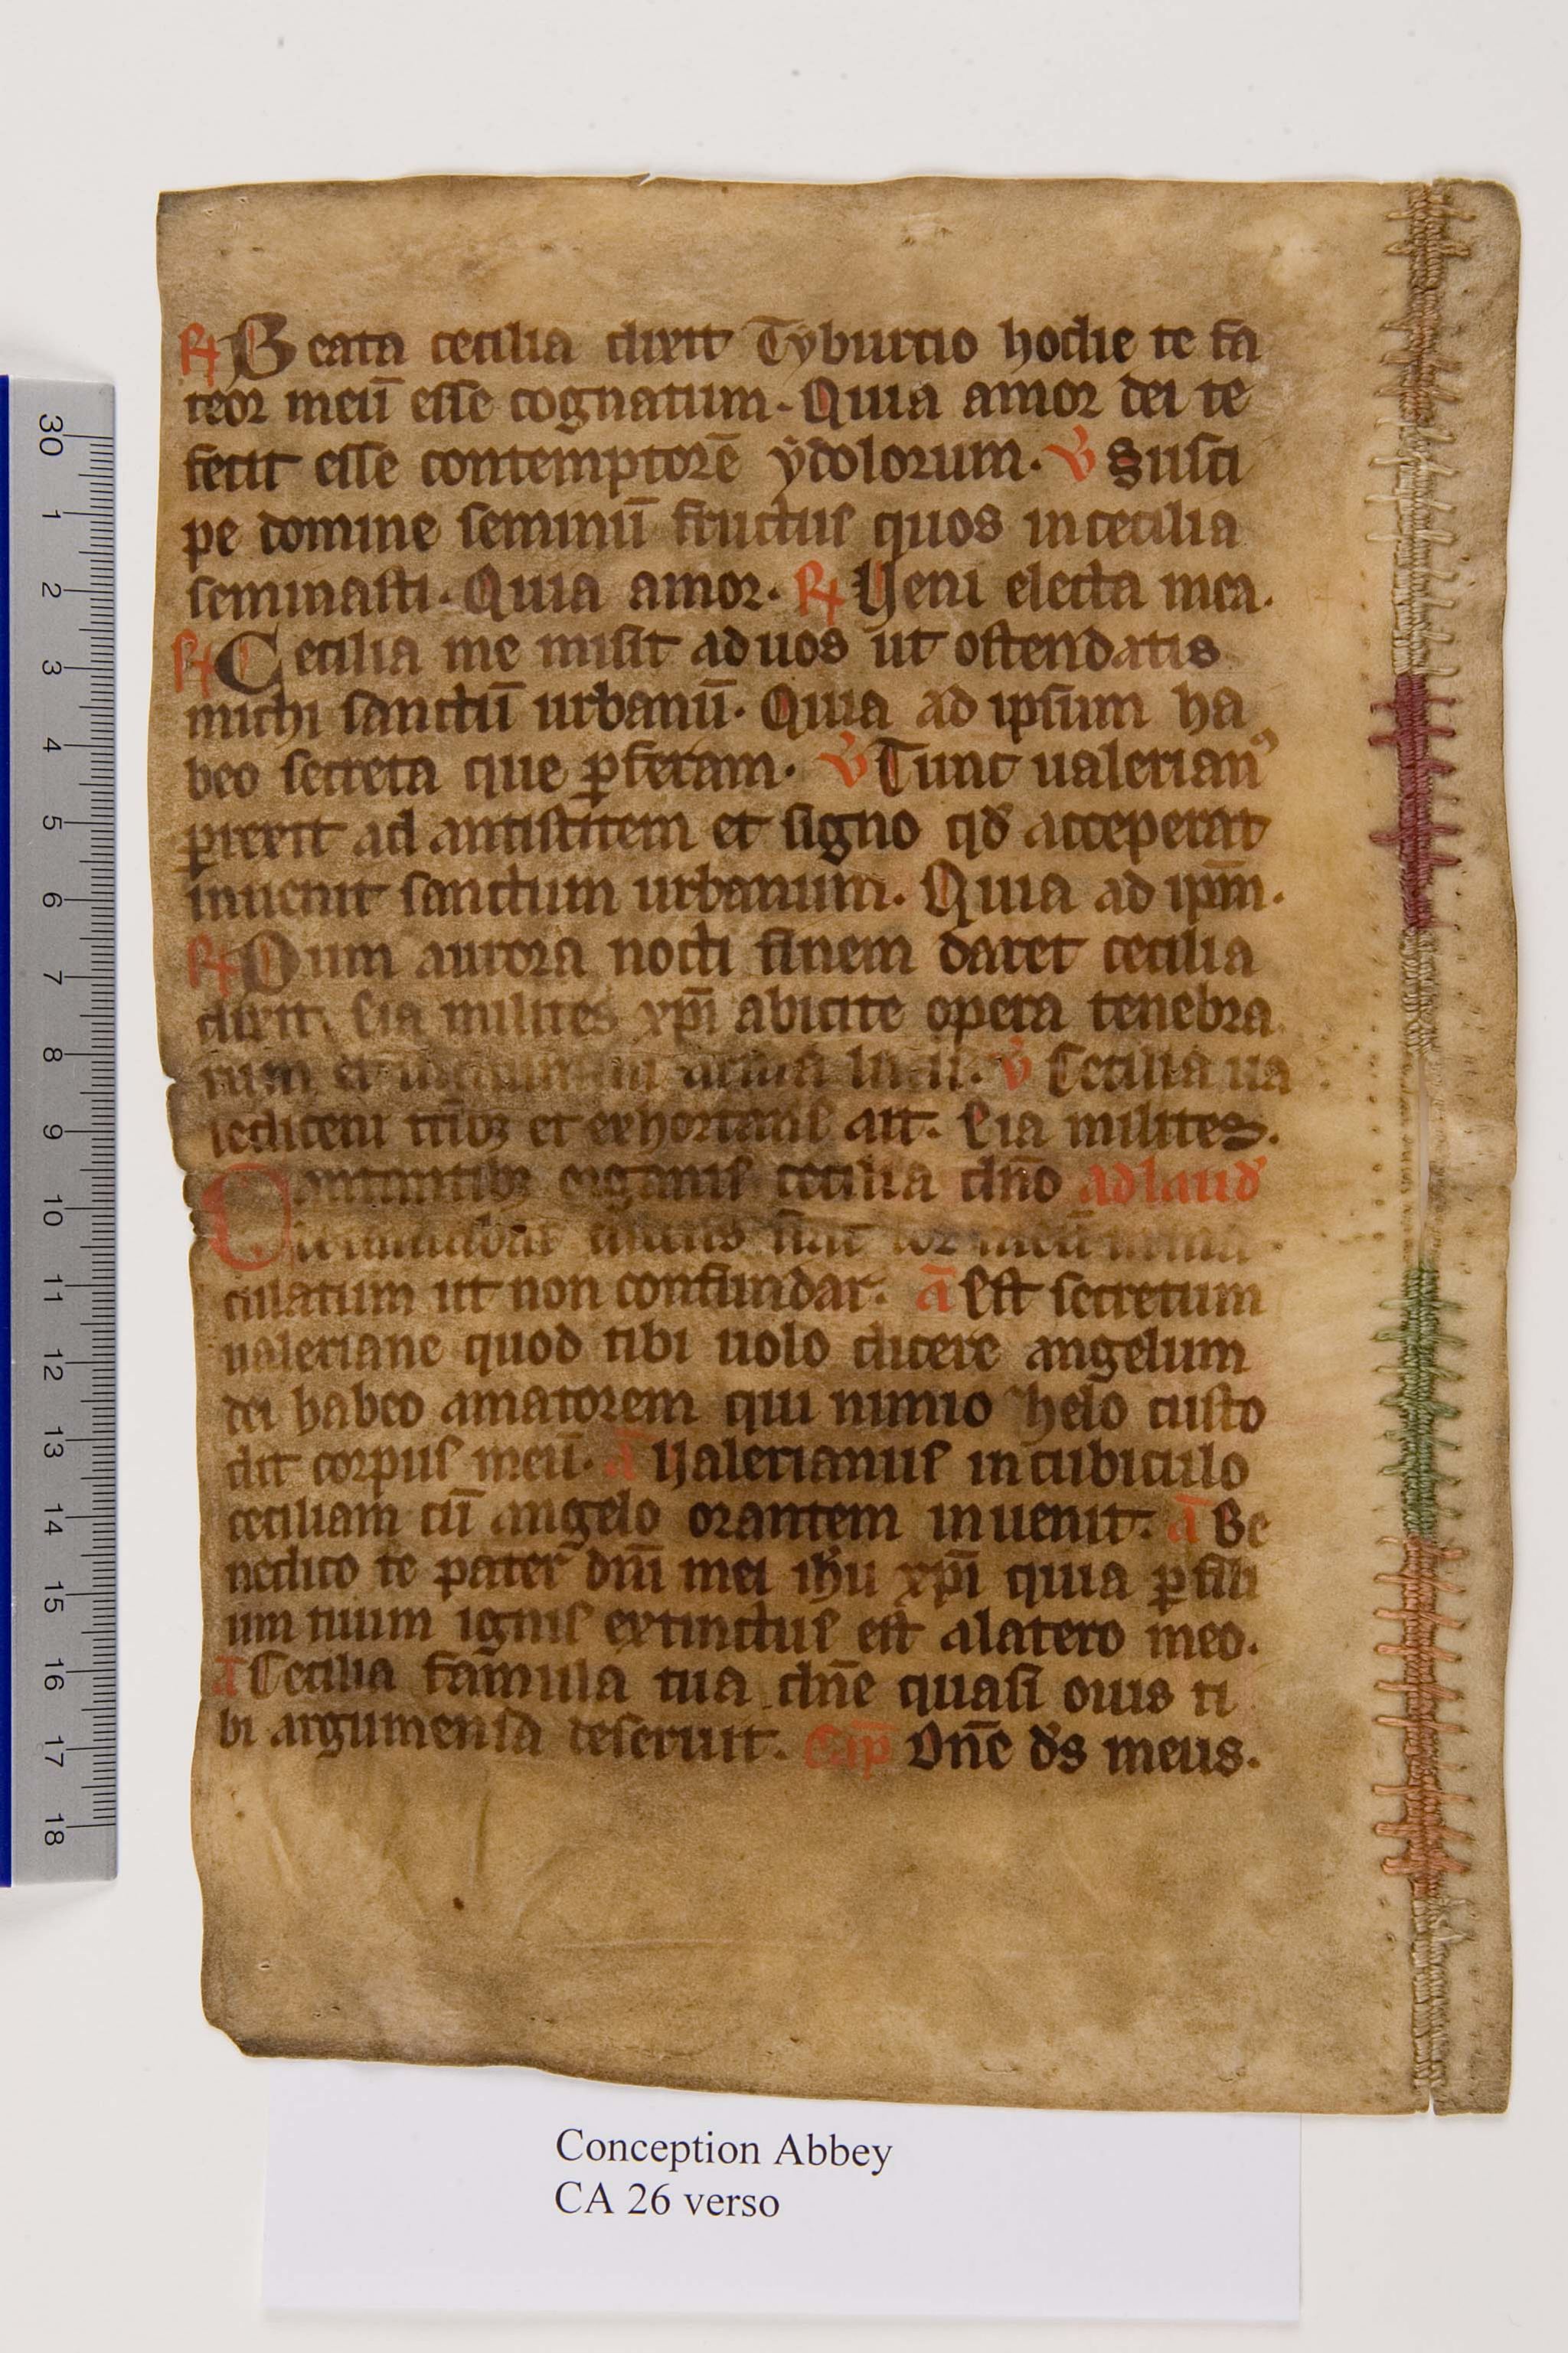 ℟ Beata cecilia dixit Tyburcio hodie te fa
teor meū esse cognatum. Quia amor dei te
fecit esse contemptorē ẏdolorum. ℣ Susci
pe domine seminū fructus quos in cecilia
seminasti. Quia amor. ℟ Veni electa mea.
℟ Cecilia me misit ad uos ut ostendatis
michi sanctū urbanū. Quia ad ipsum ha
beo secreta que ꝑferam. ℣ Tunc ualerianꝰ
ꝑrexit ad antistitem et signo qd̄ acceperat
inuenit sanctum urbanum. Quia ad ip̄m.
℟ Dum aurora nocti finem daret cecilia
dixit. Eia milites xp̄i abicite opera tenebra
rum et arma lucis. ℣ Cecilia ua
ledicens et exhortans ait. Eia milites.
Cantantibꝫ organis cecilia dn̄o ad laud̄
culatum ut non confundar. ā Est secretum
ualeriane quod tibi uolo dicere angelum
dei habeo amatorem qui nimio helo custo
dit corpus meū. ā Valerianus in cubiculo
ceciliam cū angelo orantem inuenit. ā Be
nedico te pater dn̄i mei ih̄u xp̄i quia ꝑ fili
um tuum ignis extinctus est a latero meo.
ā Cecilia famula tua dn̄e quasi ouis ti
bi argumensa deseruit. Cap̄ Dn̄e d̄s meus.
30 1 2 3 4 5 6 7 8 9 10 11 12 13 14 15 16 17 18
Conception Abbey
CA 26 verso